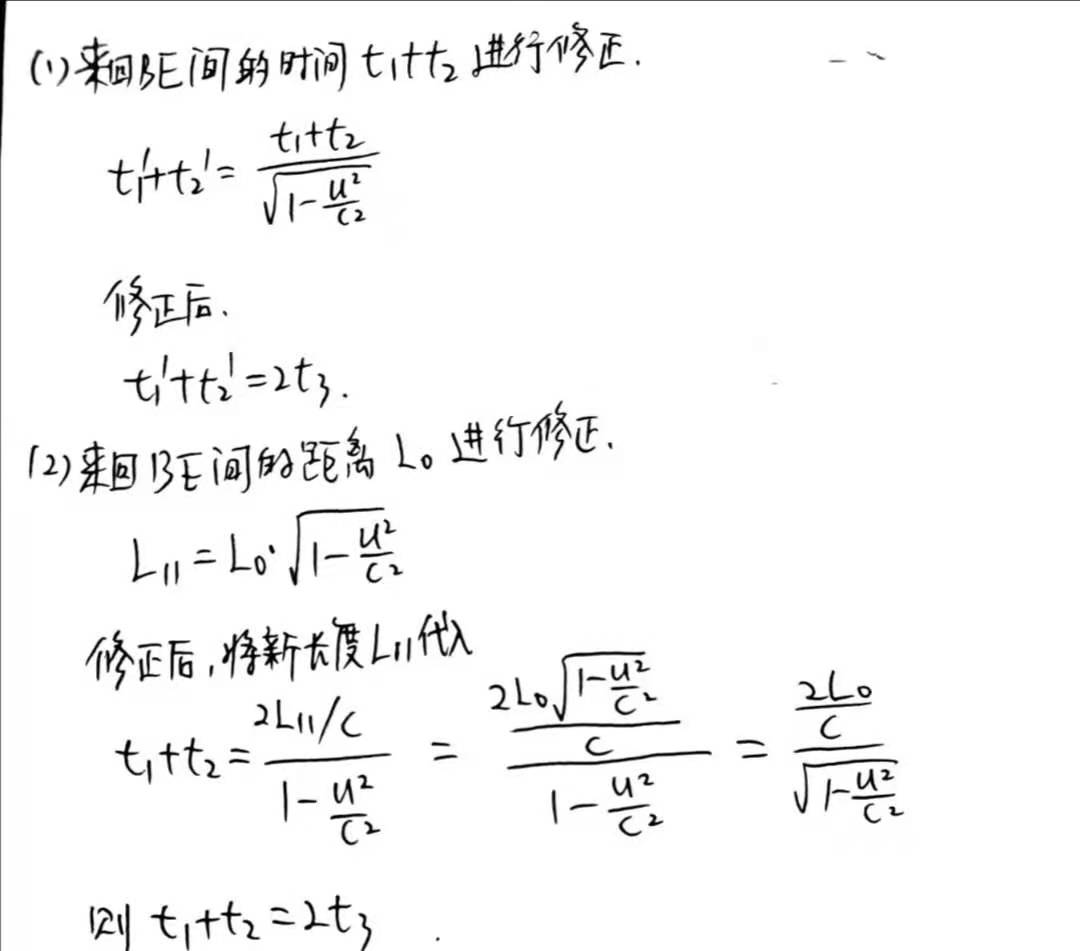 (1) 来回BE间的时间 t₁+t₂ 进行修正.
t₁'+t₂' = (t₁+t₂)/√(1-u²/c²)
修正后.
t₁'+t₂'=2t₃.
(2) 来回BE间的距离 L₀ 进行修正.
L₁₁=L₀·√(1-u²/c²)
修正后,将新长度L₁₁代入
t₁+t₂ = (2L₁₁/c)/(1-u²/c²) = (2L₀√(1-u²/c²)/c)/(1-u²/c²) = (2L₀/c)/√(1-u²/c²)
则 t₁+t₂=2t₃.